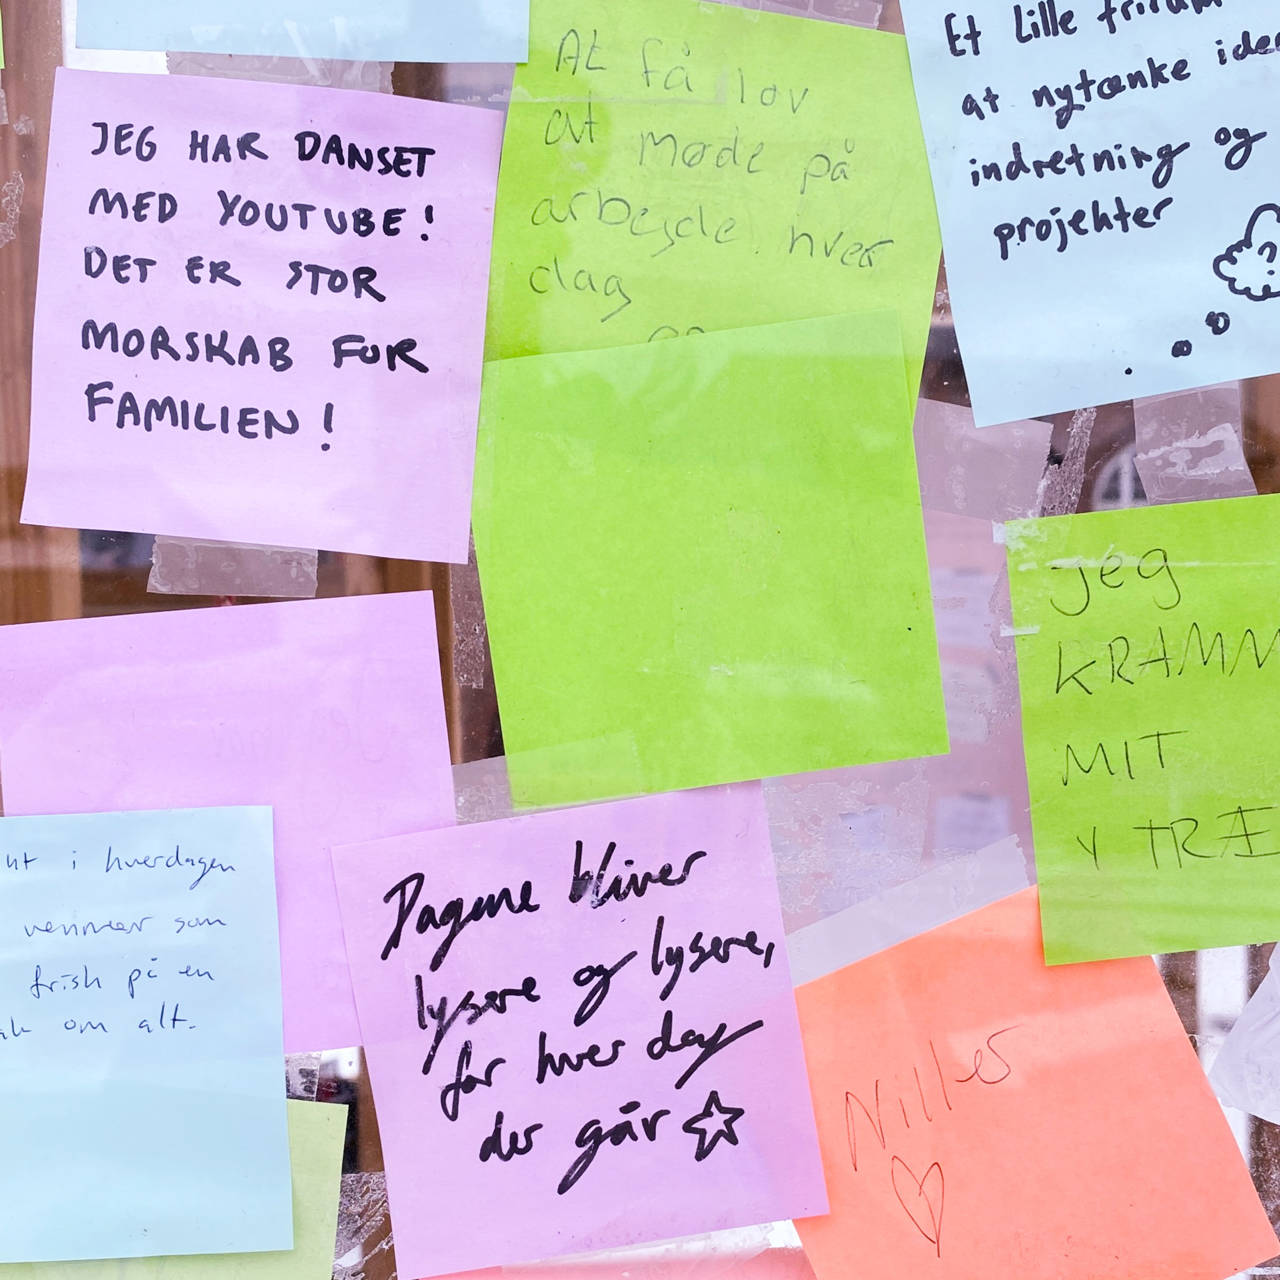 JEG HAR DANSET
MED YOUTUBE!
DET ER STOR
MORSKAB FUR
FAMILIEN!
At få lov
at møde på
arbejde hver
dag
Et lille frirum
at nytænke
indretning og
projekter
?
jeg
KRAMM
MIT
TRÆ
i hverdagen
som
frisk på en
om alt.
Dagene bliver
lysere og lysere,
for hver dag
der går
Niller